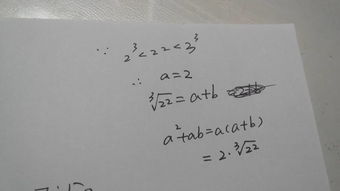 ∵ 2³<22<3³
∴ a=2
∛22=a+b
a²+ab=a(a+b)
=2·∛22